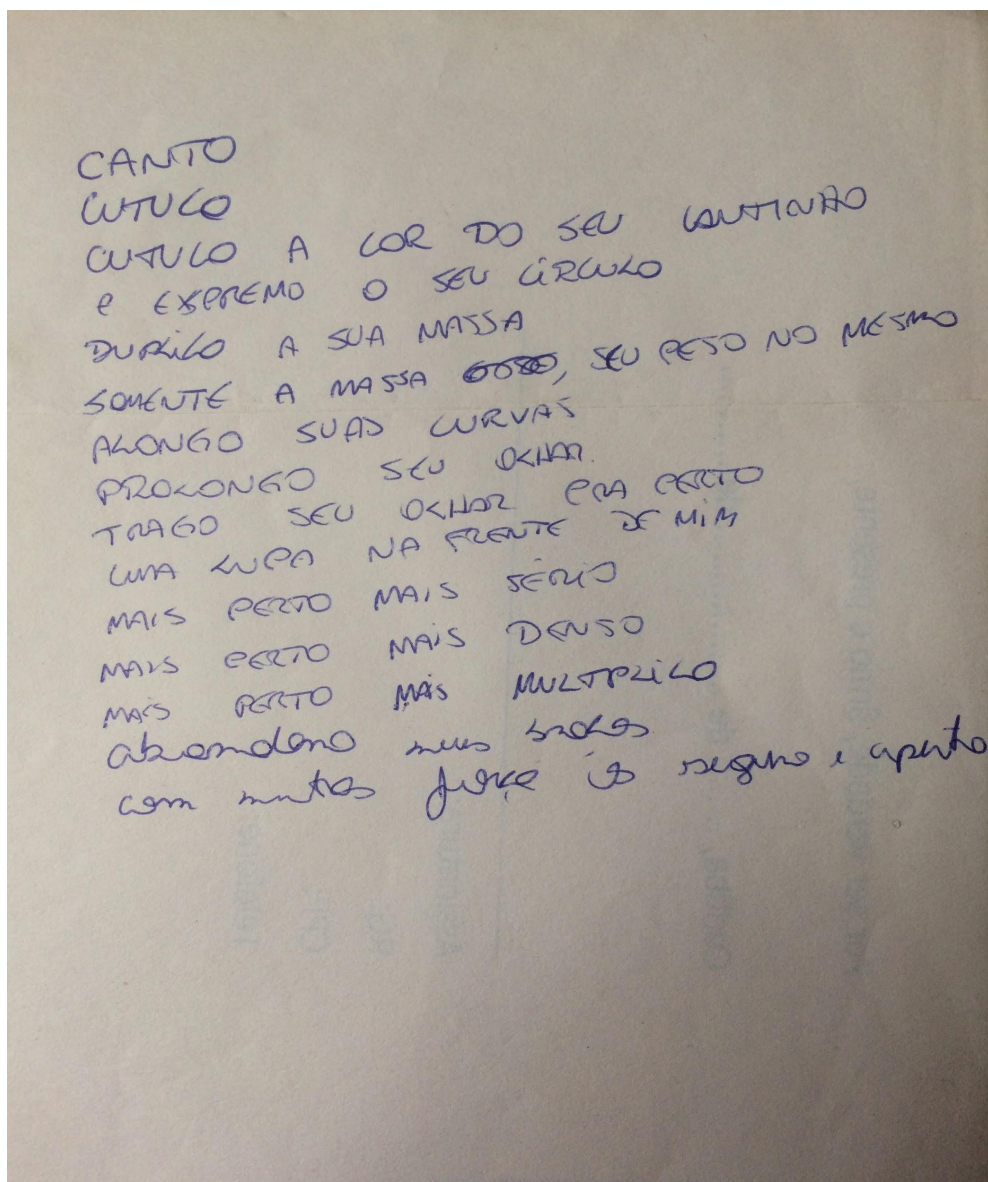 CANTO
CUTUCO
CUTUCO A COR DO SEU CANTINHO
e EXPREMO O SEU CÍRCULO
DUPLICO A SUA MASSA
SOMENTE A MASSA, SEU PESO NO MESMO
ALONGO SUAS CURVAS
PROLONGO SEU OLHAR
TRAGO SEU OLHAR PRA PERTO
UMA LUPA NA FRENTE DE MIM
MAIS PERTO MAIS SÉRIO
MAIS PERTO MAIS DENSO
MAIS PERTO MAIS MULTIPLICO
abandono meus
com muita força os seguro e aperto